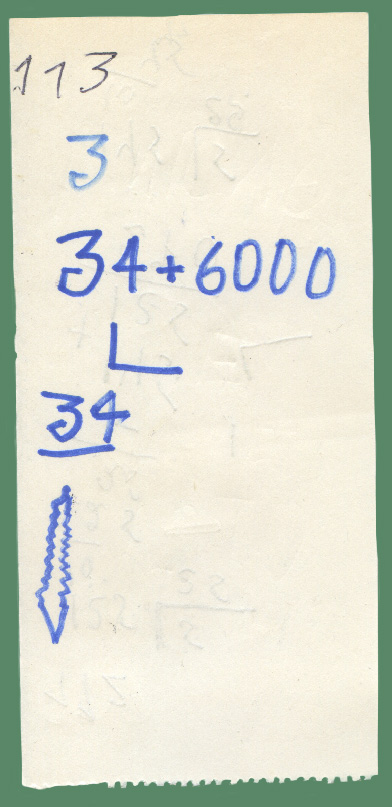 113
3
34+6000
34